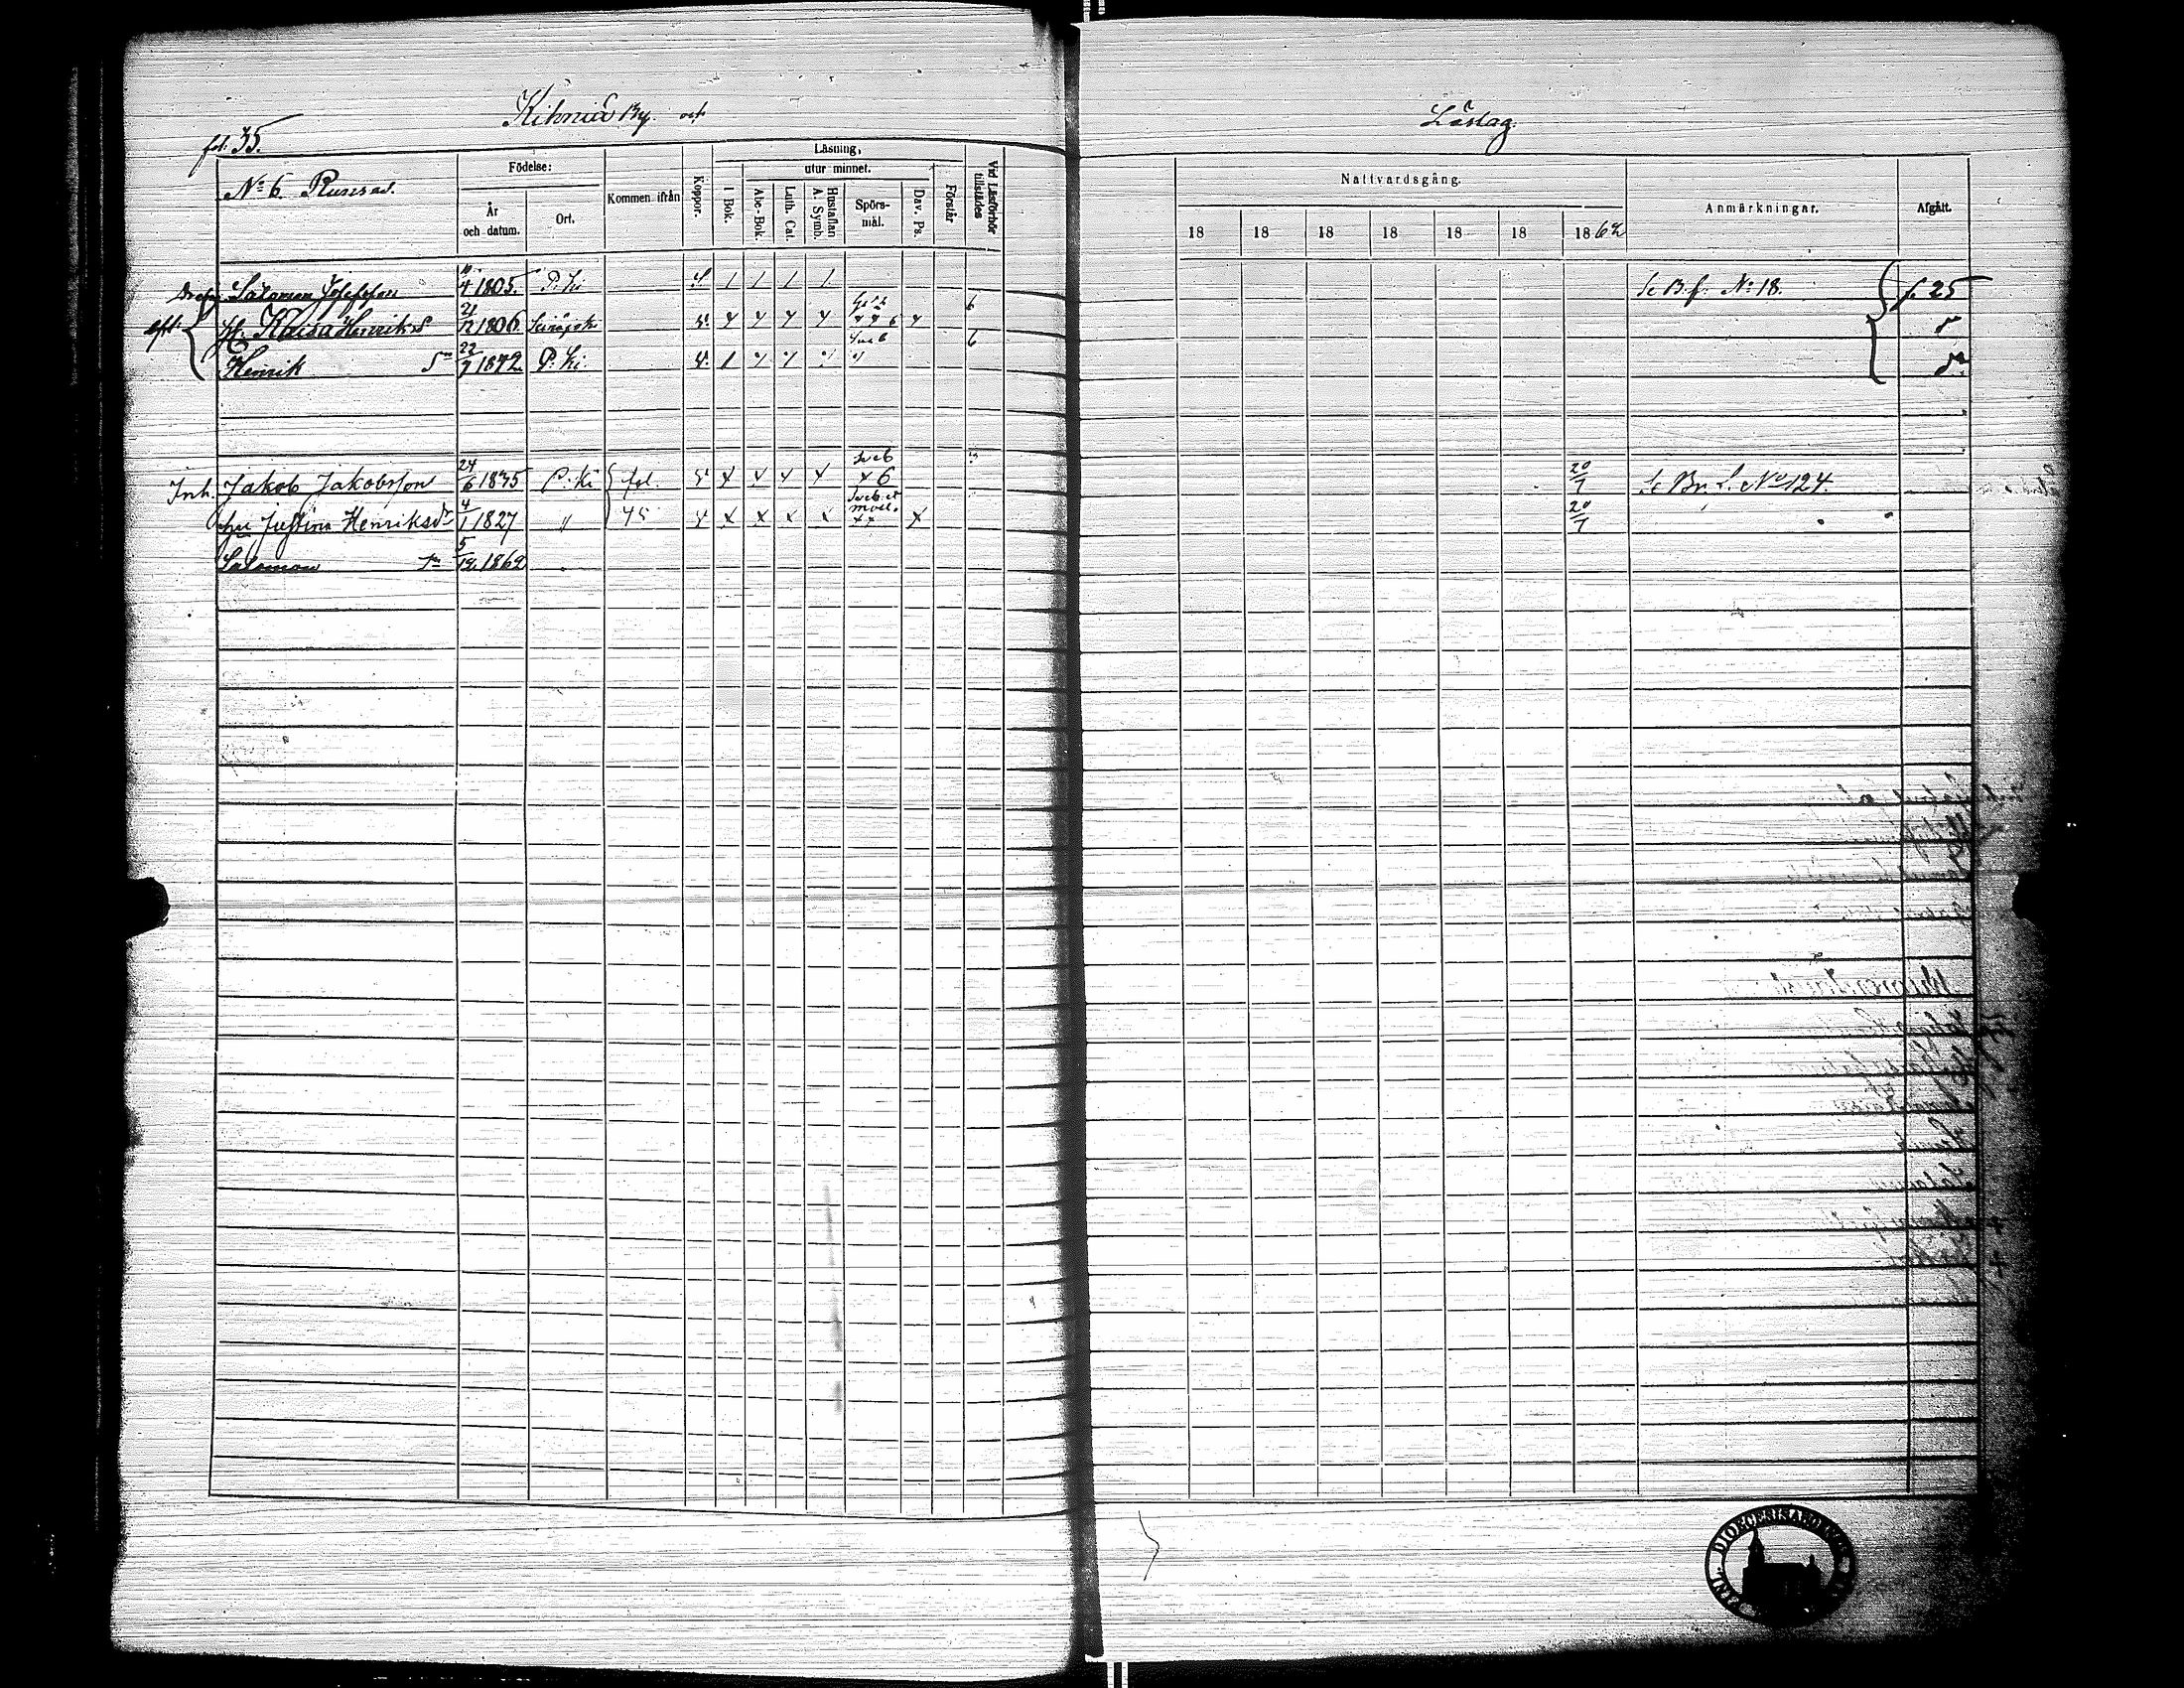 fol. 35. Kihniä By. och Läslag.
No 6. Runsas.
Födelse:
År och datum.
Ort.
Kommen ifrån
Koppor.
Läsning,
I Bok.
utur minnet.
Abc-Bok.
Luth. Cat.
Hustaflan A. Symb.
Spörsmål.
Dav. Ps.
Förstår
Vid Läsförhör tillstädes
Nattvardsgång.
18 18 18 18 18 18 1862
Anmärkningar.
Afgått.
Salomon Josefsson 4 1805. P. Ki / / / / Se B. f. No 18. f. 25
H. Kaisa Henriksd 21/12 1806 6
Henrik Sn 22/7 1842 P. Ki. 6
Inh. Jakob Jakobsson 24/6 1835 P. Ki fol. 45 x x x x 6 20/7 Se Br. L. No 124.
Hu Justina Henriksdr 4/1 1827 " x x x x x x x 20/7
Salomon Sn 5/12 1862